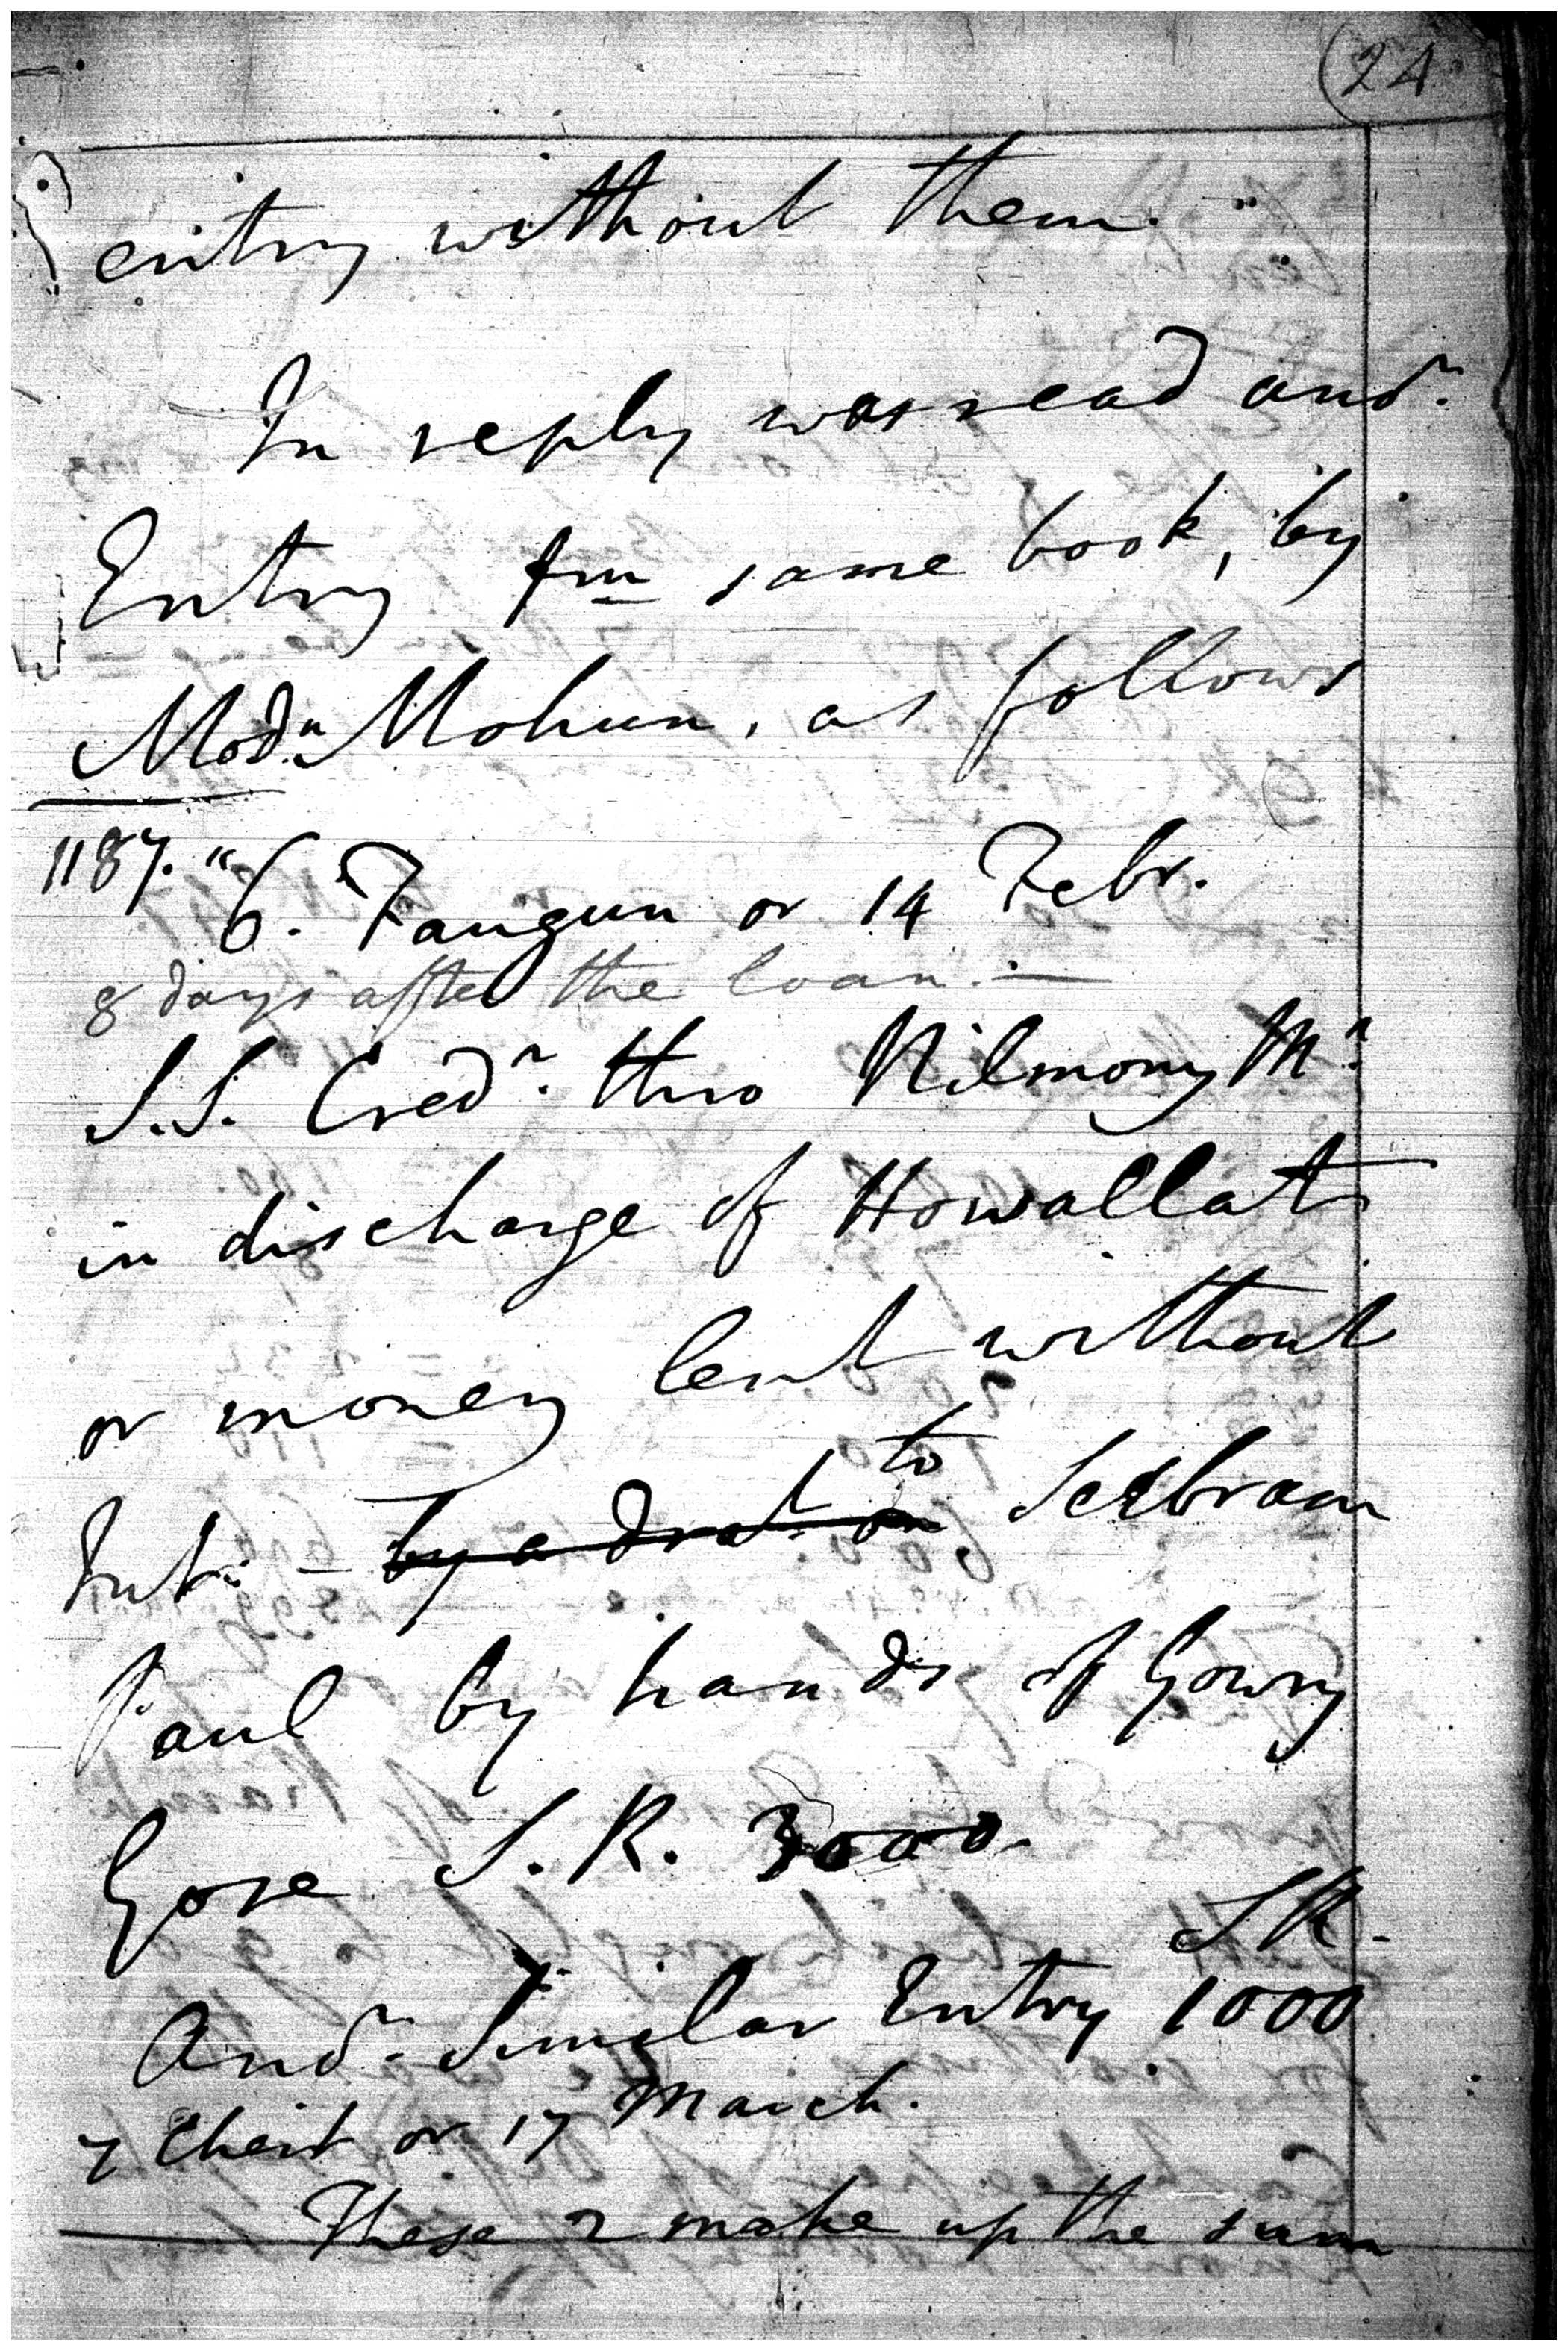 24
entry without them."
In reply was read anr.
Entry fm same book, by
Modn. Mohun, as follows
1187. "6. Faugun or 14 Febr.
8 days after the loan. —
S.S. Credr. thro Nilmony Mr.
in discharge of Howallat
or money lent without
Int: — by a drat. on to Seebram
Paul by hands of Gowry
Gose S.R. 3000
S.R.
Anr. Similar Entry 1000
7 Cheit or 17 March.
These 2 make up the sum